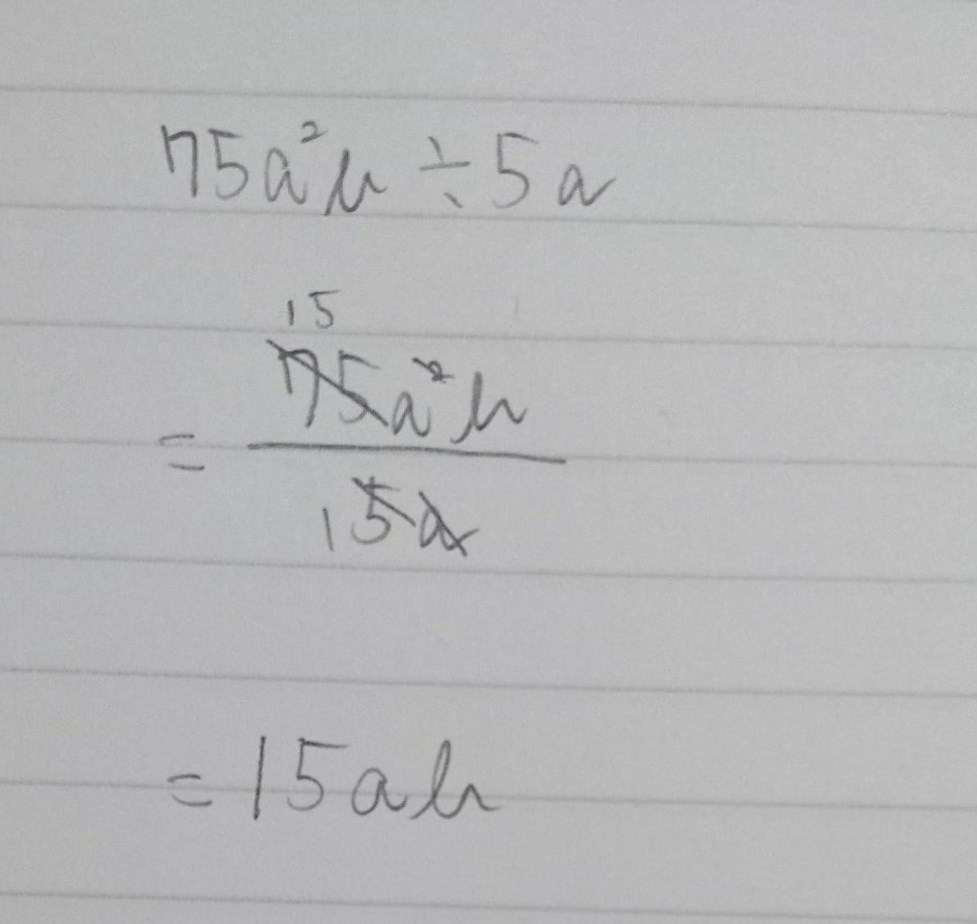 75a²h ÷ 5a
15
= 75a²h
15a
= 15ah